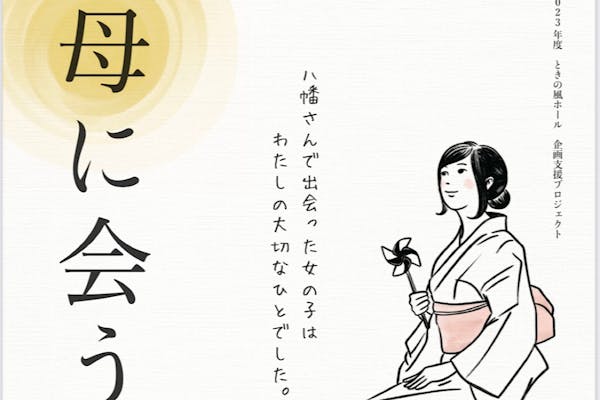 2023年度　ときの風ホール　企画支援プロジェクト
八幡さんで出会った女の子は
わたしの大切なひとでした。
母に会う